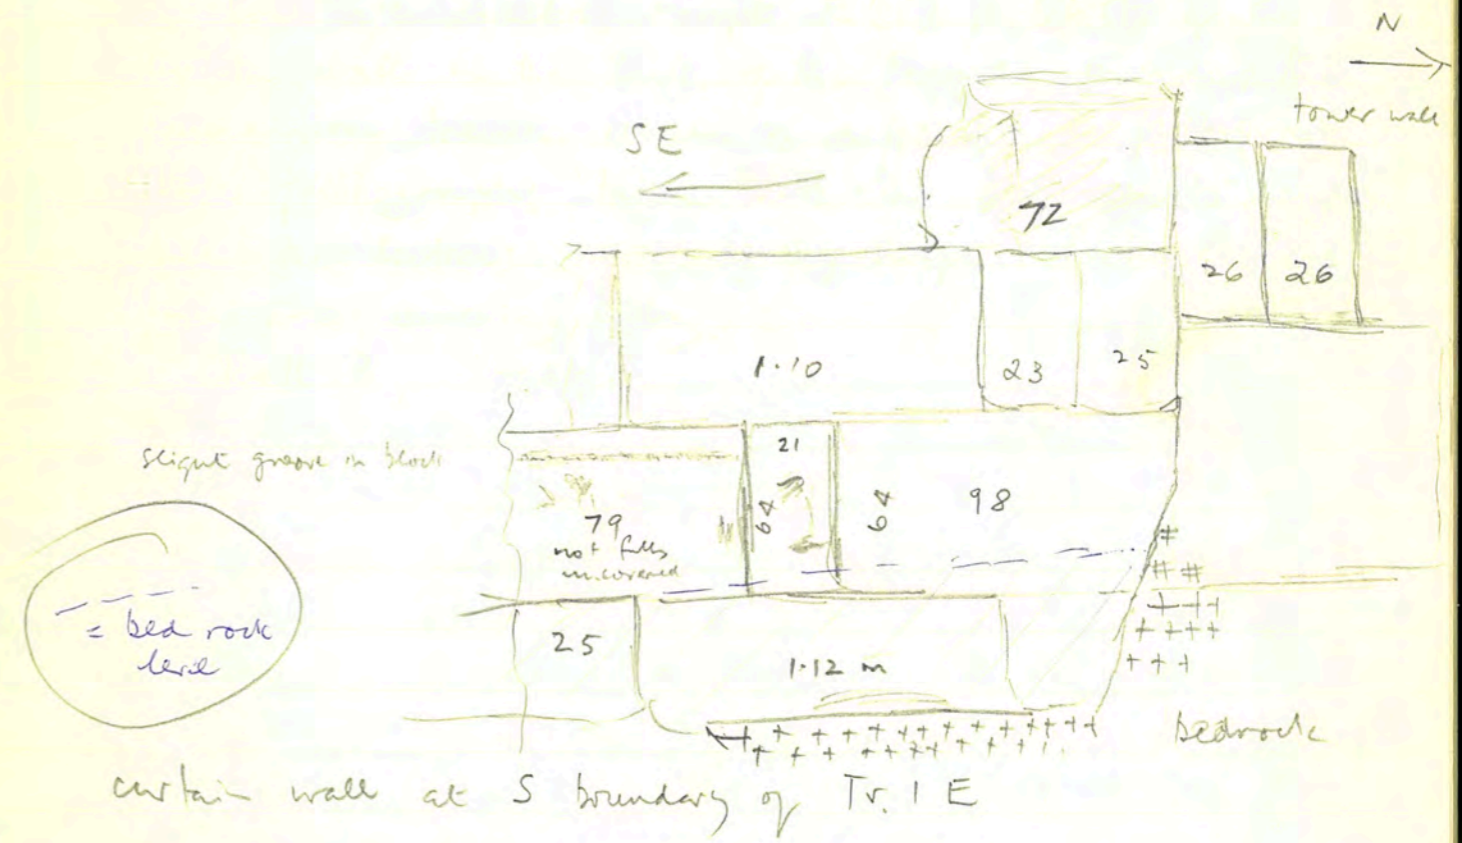 N
tower wall
SE
72
26 26
1.10
23
25
21
slight groove in block
64
64
98
79
not fully
uncovered
= bed rock
level
25
1.12 m
bedrock
curtain wall at S boundary of Tr. 1 E